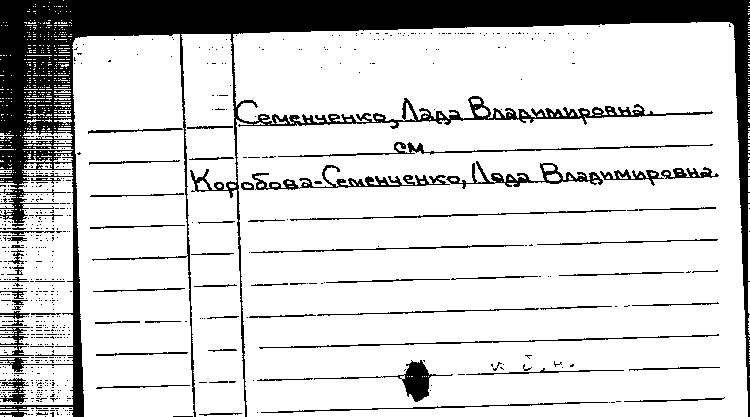 Семенченко, Лада Владимировна.
см.
Коробова-Семенченко, Лада Владимировна.